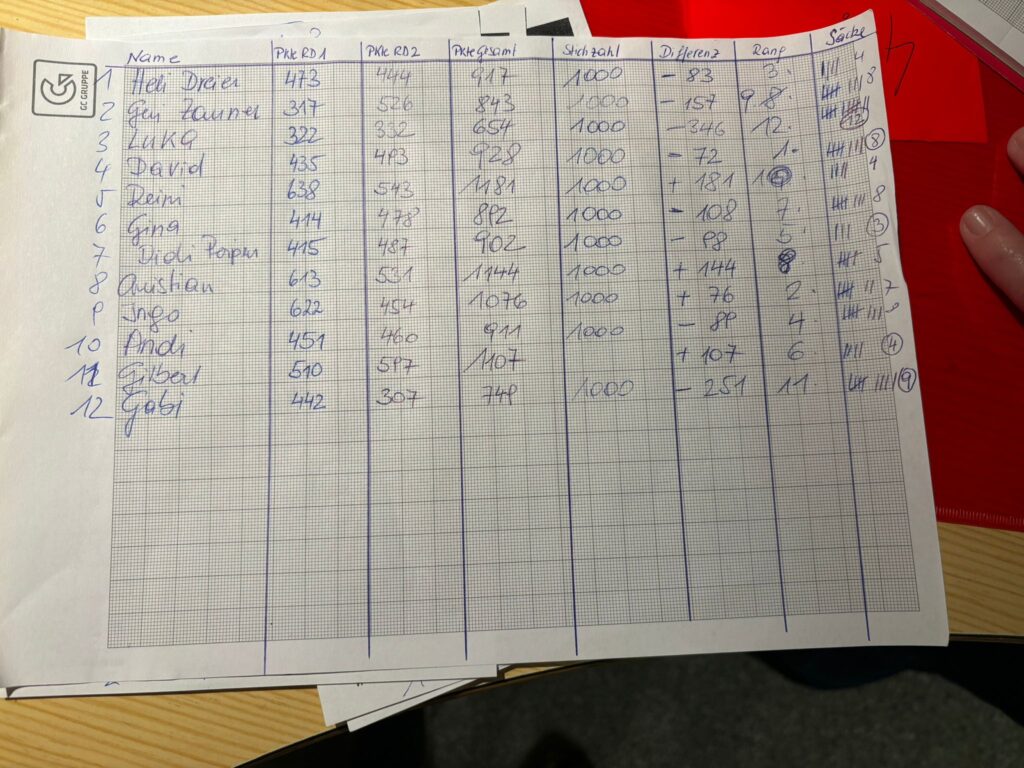 GC GRUPPE
Name Pkte RD1 Pkte RD2 Pkte gesamt Stichzahl Differenz Rang Säcke
1 Heli Dreier 473 444 917 1000 - 83 3. 4
2 317 526 843 1000 - 157 9 8
3 LUKA 322 332 654 1000 - 346 12. 12
4 David 435 493 928 1000 - 72 1. 8
5 Reini 638 543 1181 1000 + 181 10. 4
6 Gina 414 478 892 1000 - 108 7. 8
7 Didi 415 487 902 1000 - 98 5. 3
8 Christian 613 531 1144 1000 + 144 8 5
9 Ingo 622 454 1076 1000 + 76 2. 7
10 Andi 451 460 911 1000 - 89 4.
11 Gilbert 510 597 1107 + 107 6. 4
12 Gabi 442 307 749 1000 - 251 11. 9